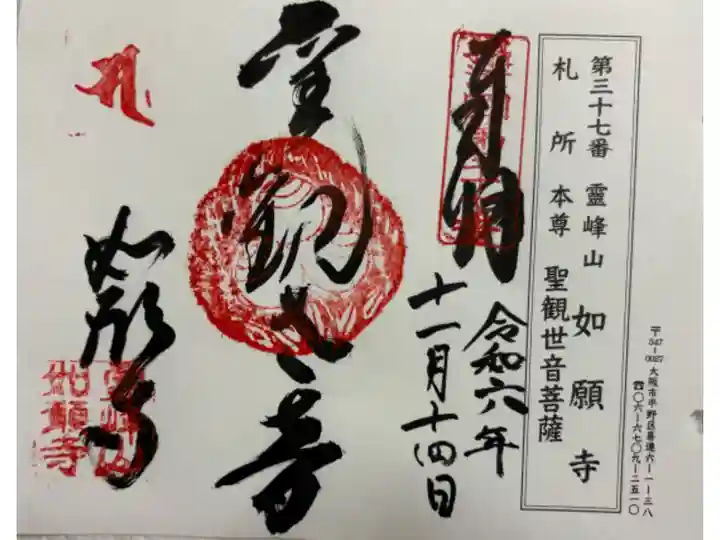 第三十七番 靈峰山 如願寺
札所本尊 聖観世音菩薩
〒547-0027 大阪市平野区喜連六-一-三八
☎〇六-六七〇九-二五一〇
奉拝
令和六年
十一月十四日
聖観世音
如願寺
靈峰山
如願寺